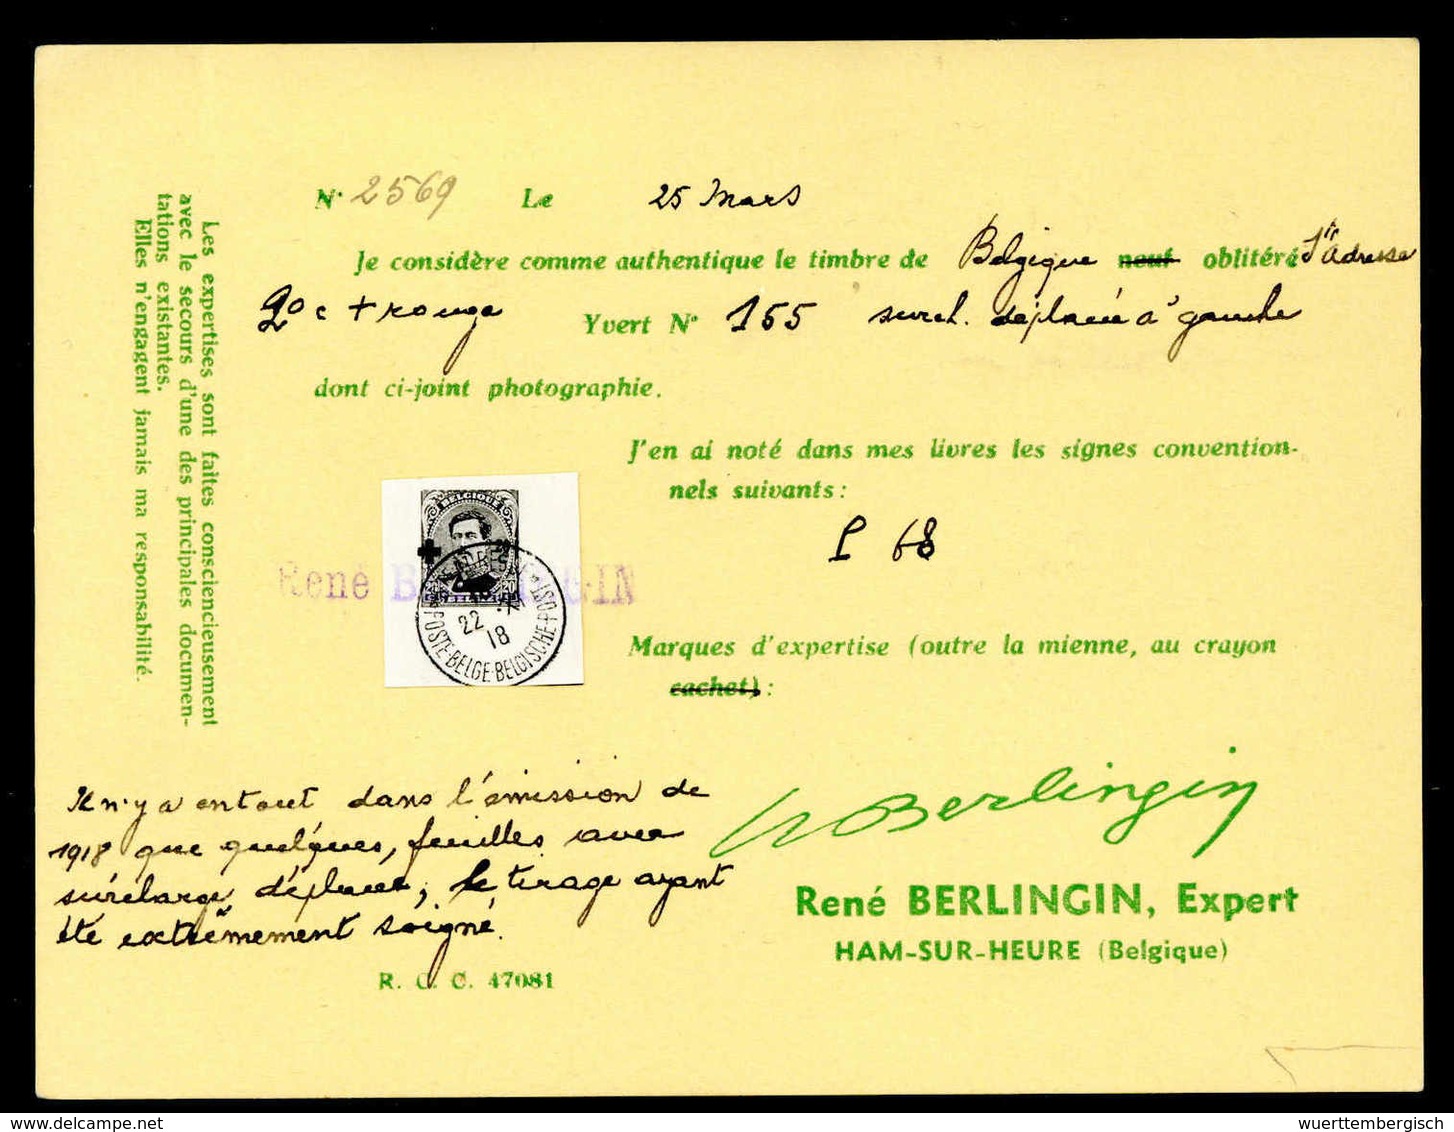 Nº 2569 Le 25 Mars
Je considère comme authentique le timbre de Belgique neuf oblitéré Ste Adresse
20 c + rouge Yvert Nº 155 surch. déplacée à gauche
dont ci-joint photographie.
J'en ai noté dans mes livres les signes convention-
nels suivants:
P 68
Marques d'expertise (outre la mienne, au crayon
cachet):
Les expertises sont faites consciencieusement
avec le secours d'une des principales documen-
tations existantes.
Elles n'engagent jamais ma responsabilité.
BELGIQUE
20
22
18
POSTE·BELGE·BELGISCHE·POST
René B IN
Il n'y a en tout dans l'émission de
1918 que quelques, feuilles avec
surcharge déplacée, le tirage ayant
été extrêmement soigné.
Berlingin
René BERLINGIN, Expert
HAM-SUR-HEURE (Belgique)
R. C. C. 47081
delcampe.net
wuerttembergisch